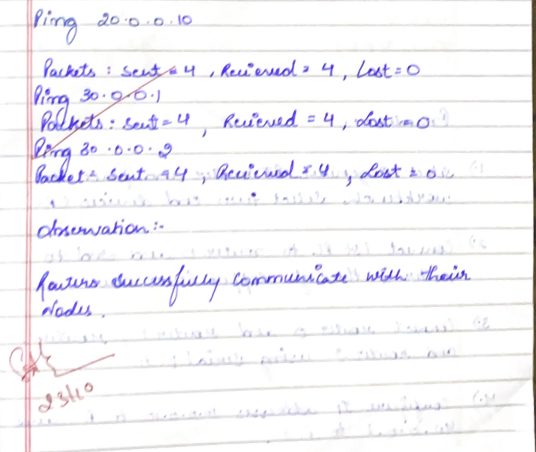 Ping 20.0.0.10
Packets: sent = 4, Recieved = 4, Lost = 0
Ping 30.0.0.1
Packets: sent = 4, Recieved = 4, Lost = 0
Ping 30.0.0.2
Packet = sent = 4, Recieved = 4, Lost = 0
Observation:-
Routers successfully communicate with their
Nodes.
23/10